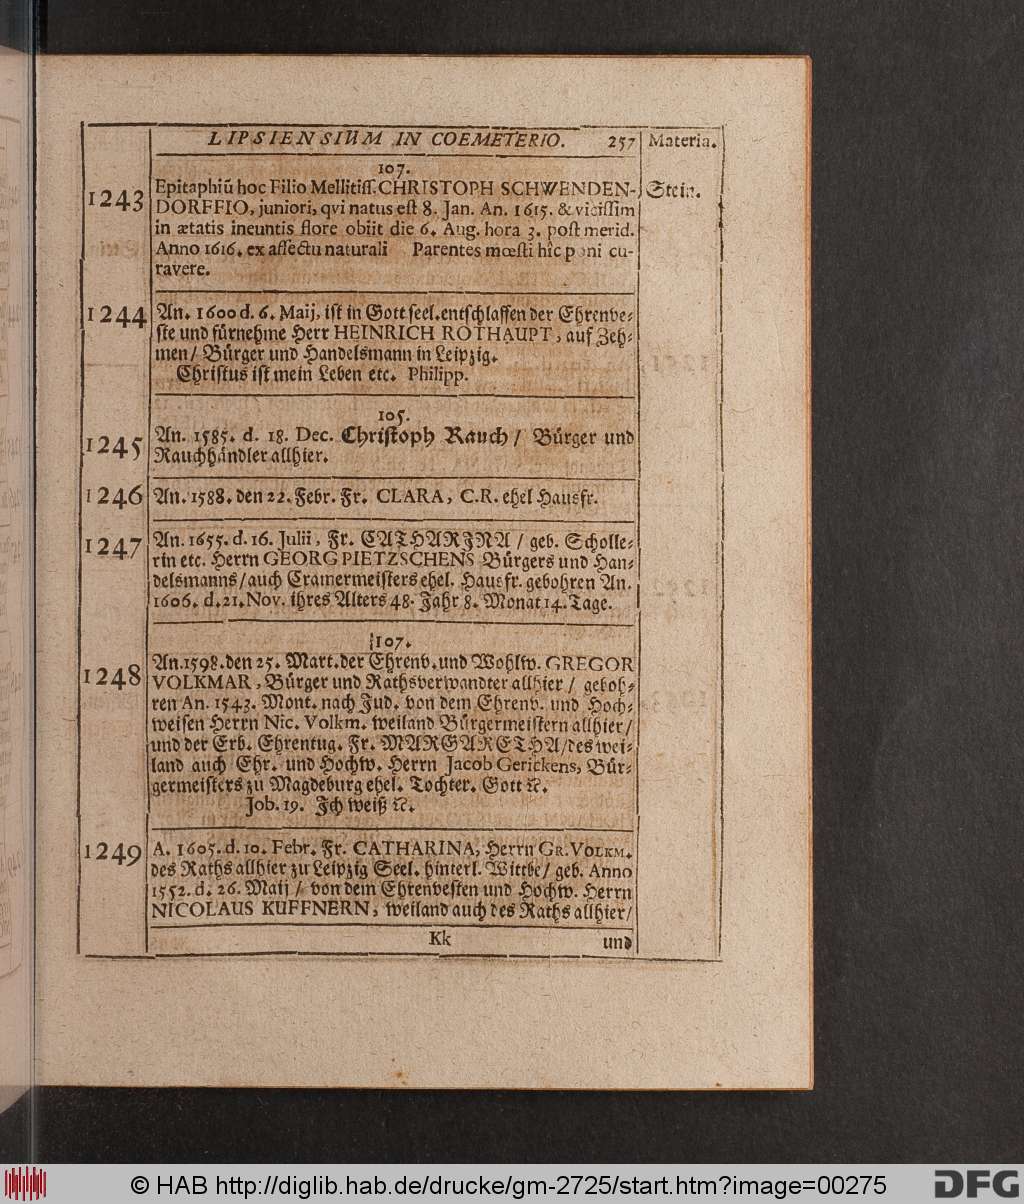 LIPSIENSIUM IN COEMETERIO. 257 Materia.
107.
1243 Epitaphiũ hoc Filio Mellitiſſ. CHRISTOPH SCHWENDEN- Stein.
DORFFIO, juniori, qvi natus eſt 8. Jan. An. 1615. & viciſſim
in ætatis ineuntis flore obiit die 6. Aug. hora 3. poſt merid.
Anno 1616. ex affectu naturali Parentes mœſti hîc poni cu-
ravere.
1244 An. 1600 d. 6. Maij, iſt in Gott ſeel. entſchlaffen der Ehrenve-
ſte und fürnehme Herr HEINRICH ROTHAUPT, auf Zeh-
men / Bürger und Handelsmann in Leipzig.
Chriſtus iſt mein Leben etc. Philipp.
105.
1245 An. 1585. d. 18. Dec. Chriſtoph Rauch / Bürger und
Rauchhändler allhier.
1246 An. 1588. den 22. Febr. Fr. CLARA, C.R. ehel Hausfr.
1247 An. 1655. d. 16. Julii, Fr. CATHARINA / geb. Scholle-
rin etc. Herrn GEORG PIETZSCHENS Bürgers und Han-
delsmanns / auch Cramermeiſters ehel. Hausfr. gebohren An.
1606. d. 21. Nov. ihres Alters 48. Jahr 8. Monat 14. Tage.
107.
1248 An. 1598. den 25. Mart. der Ehrenv. und Wohlw. GREGOR
VOLKMAR, Bürger und Rathsverwandter allhier / geboh-
ren An. 1543. Mont. nach Jud. von dem Ehrenv. und Hoch-
weiſen Herrn Nic. Volkm. weiland Bürgermeiſtern allhier /
und der Erb. Ehrentug. Fr. MARGARETHA / des wei-
land auch Ehr. und Hochw. Herrn Jacob Gerickens, Bür-
germeiſters zu Magdeburg ehel. Tochter. Gott ꝛc.
Job. 19. Ich weiß ꝛc.
1249 A. 1605. d. 10. Febr. Fr. CATHARINA, Herrn GR. VOLKM.
des Raths allhier zu Leipzig Seel. hinterl. Wittbe / geb. Anno
1552. d. 26. Maij / von dem Ehrenveſten und Hochw. Herrn
NICOLAUS KUFFNERN, weiland auch des Raths allhier /
Kk und
© HAB http://diglib.hab.de/drucke/gm-2725/start.htm?image=00275
DFG